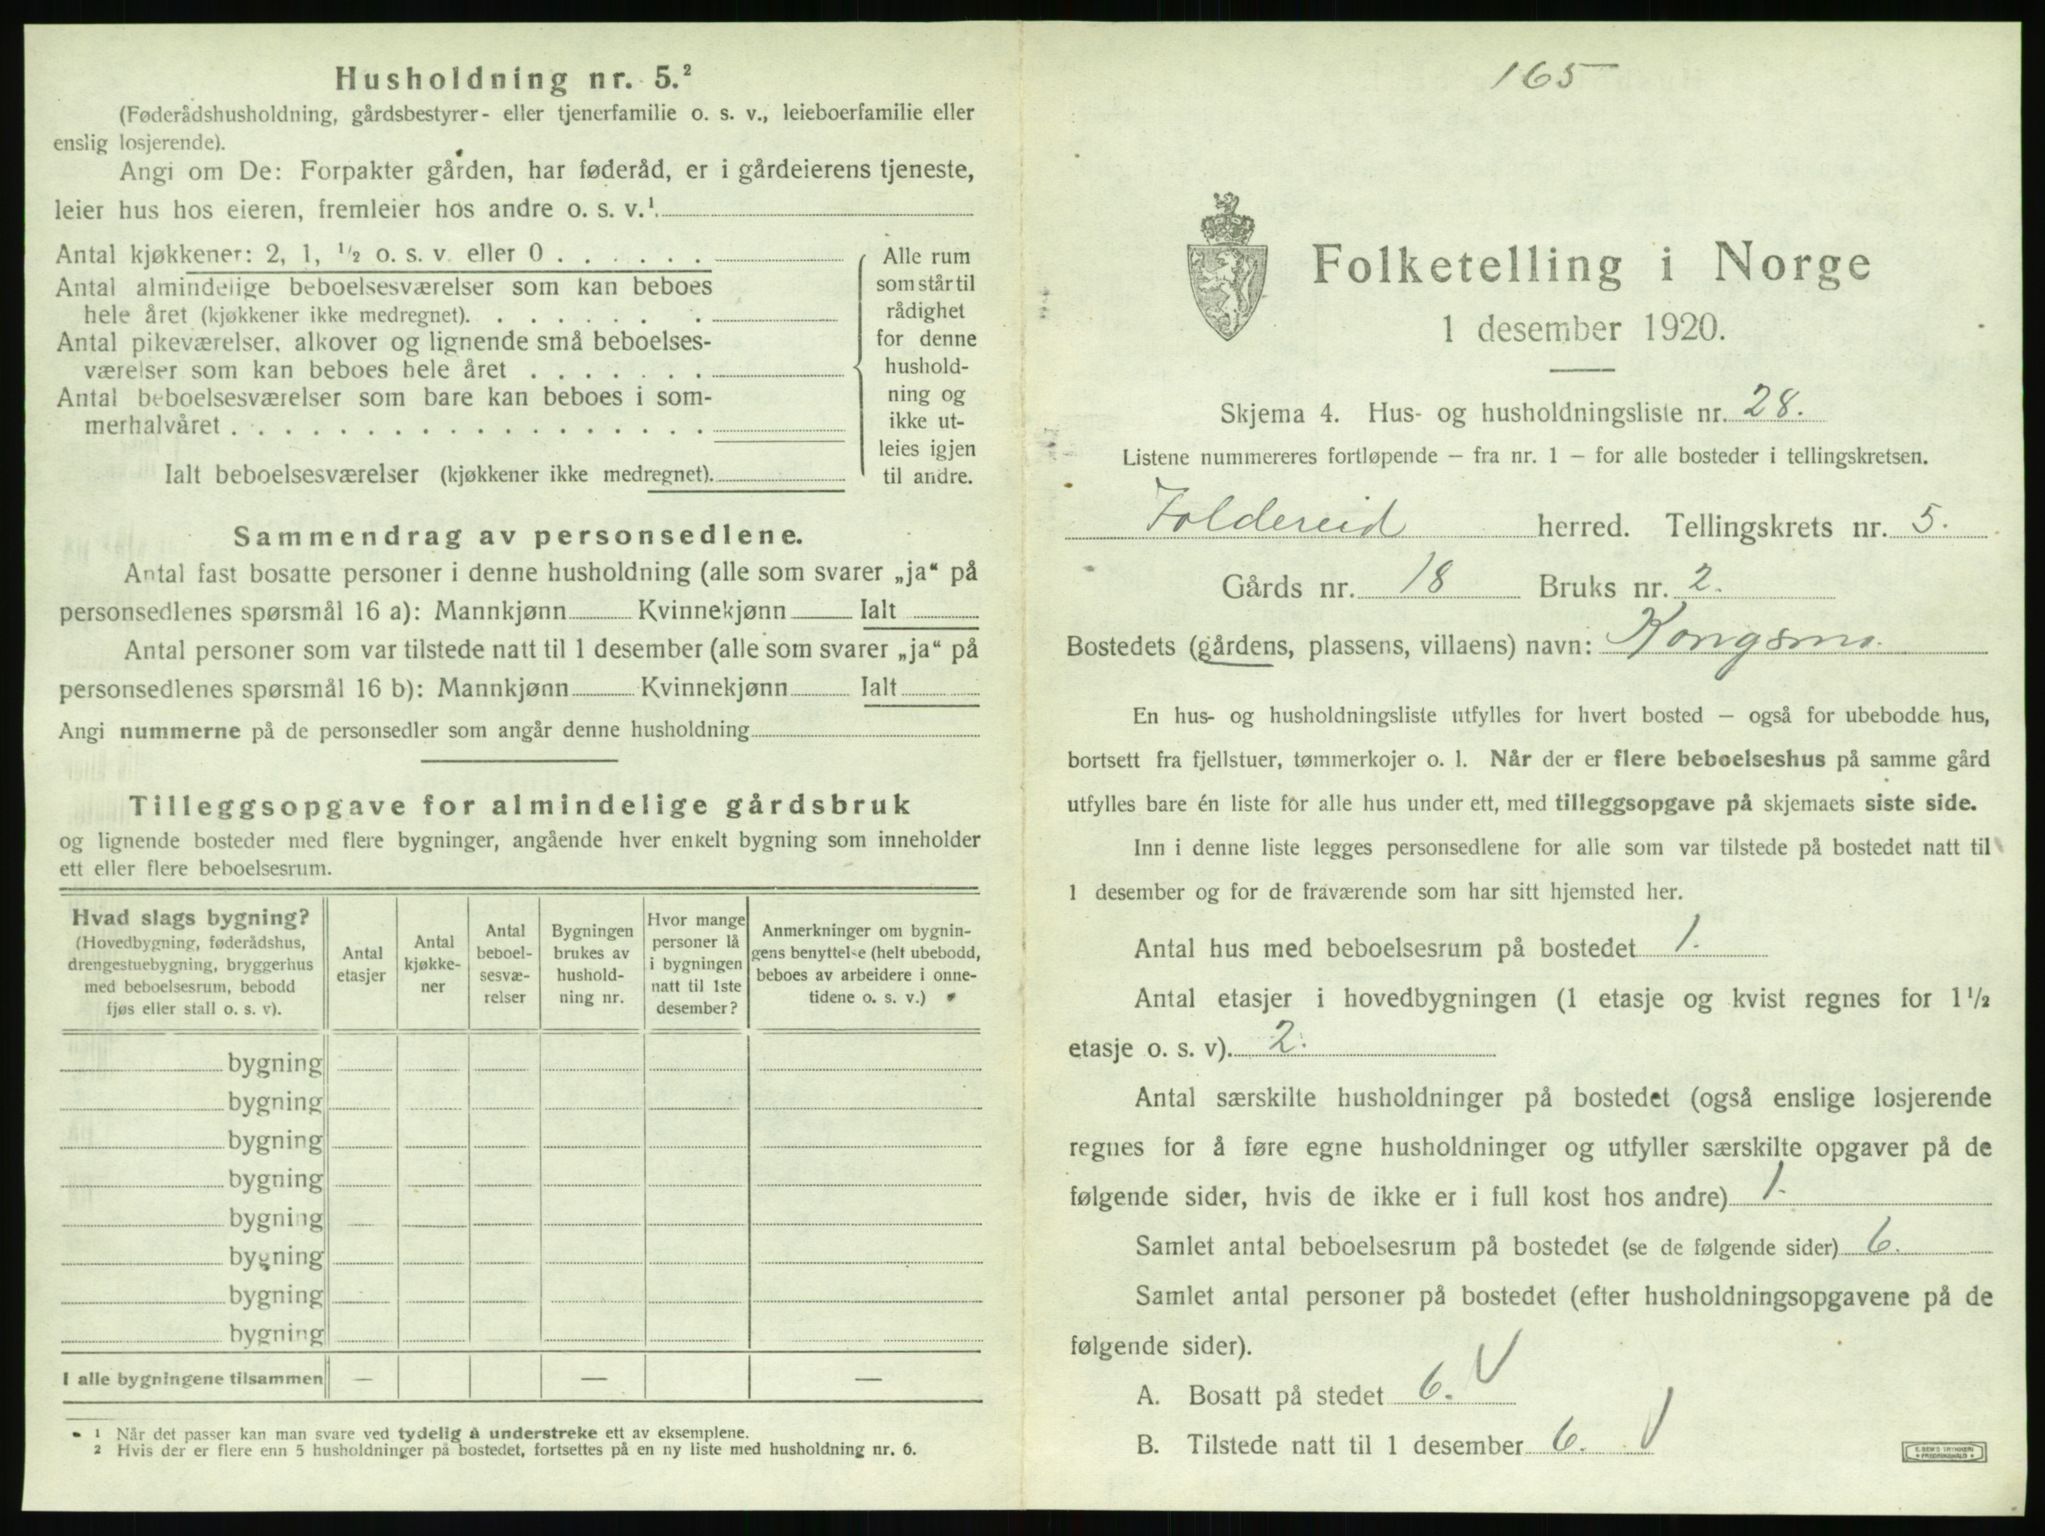 Husholdning nr. 5.²
(Føderådshusholdning, gårdsbestyrer- eller tjenerfamilie o. s. v., leieboerfamilie eller
enslig losjerende).
Angi om De: Forpakter gården, har føderåd, er i gårdeierens tjeneste,
leier hus hos eieren, fremleier hos andre o. s. v.¹
Antal kjøkkener: 2, 1, ½ o. s. v. eller 0 . . . . . .
Antal almindelige beboelsesværelser som kan beboes
hele året (kjøkkener ikke medregnet). . . . . . . .
Antal pikeværelser, alkover og lignende små beboelses-
værelser som kan beboes hele året . . . . . . .
Antal beboelsesværelser som bare kan beboes i som-
merhalvåret . . . . . . . . . . . . . . . . . .
Ialt beboelsesværelser (kjøkkener ikke medregnet).
Alle rum
som står til
rådighet
for denne
hushold-
ning og
ikke ut-
leies igjen
til andre.
Sammendrag av personsedlene.
Antal fast bosatte personer i denne husholdning (alle som svarer „ja“ på
personsedlenes spørsmål 16 a): Mannkjønn Kvinnekjønn Ialt
Antal personer som var tilstede natt til 1 desember (alle som svarer „ja“ på
personsedlenes spørsmål 16 b): Mannkjønn Kvinnekjønn Ialt
Angi nummerne på de personsedler som angår denne husholdning
Tilleggsopgave for almindelige gårdsbruk
og lignende bosteder med flere bygninger, angående hver enkelt bygning som inneholder
ett eller flere beboelsesrum.
Hvad slags bygning?
(Hovedbygning, føderådshus,
drengestuebygning, bryggerhus
med beboelsesrum, bebodd
fjøs eller stall o. s. v).
Antal
etasjer
Antal
kjøkke-
ner
Antal
beboel-
sesvæ-
relser
Bygningen
brukes av
hushold-
ning nr.
Hvor mange
personer lå
i bygningen
natt til 1ste
desember?
Anmerkninger om bygnin-
gens benyttelse (helt ubebodd,
beboes av arbeidere i onne-
tidene o. s. v.)
bygning
bygning
bygning
bygning
bygning
bygning
bygning
bygning
I alle bygningene tilsammen — — —
¹ Når det passer kan man svare ved tydelig å understreke ett av eksemplene.
² Hvis der er flere enn 5 husholdninger på bostedet, fortsettes på en ny liste med husholdning nr. 6.
165
Folketelling i Norge
1 desember 1920.
Skjema 4. Hus- og husholdningsliste nr. 28.
Listene nummereres fortløpende – fra nr. 1 – for alle bosteder i tellingskretsen.
Foldereid herred. Tellingskrets nr. 5.
Gårds nr. 18 Bruks nr. 2.
Bostedets (gårdens, plassens, villaens) navn: Kongsmo.
En hus- og husholdningsliste utfylles for hvert bosted – også for ubebodde hus,
bortsett fra fjellstuer, tømmerkojer o. l. Når der er flere beboelseshus på samme gård
utfylles bare én liste for alle hus under ett, med tilleggsopgave på skjemaets siste side.
Inn i denne liste legges personsedlene for alle som var tilstede på bostedet natt til
1 desember og for de fraværende som har sitt hjemsted her.
Antal hus med beboelsesrum på bostedet 1.
Antal etasjer i hovedbygningen (1 etasje og kvist regnes for 1½
etasje o. s. v). 2.
Antal særskilte husholdninger på bostedet (også enslige losjerende
regnes for å føre egne husholdninger og utfyller særskilte opgaver på de
følgende sider, hvis de ikke er i full kost hos andre) 1.
Samlet antal beboelsesrum på bostedet (se de følgende sider) 6.
Samlet antal personer på bostedet (efter husholdningsopgavene på de
følgende sider).
A. Bosatt på stedet 6. V
B. Tilstede natt til 1 desember 6. V